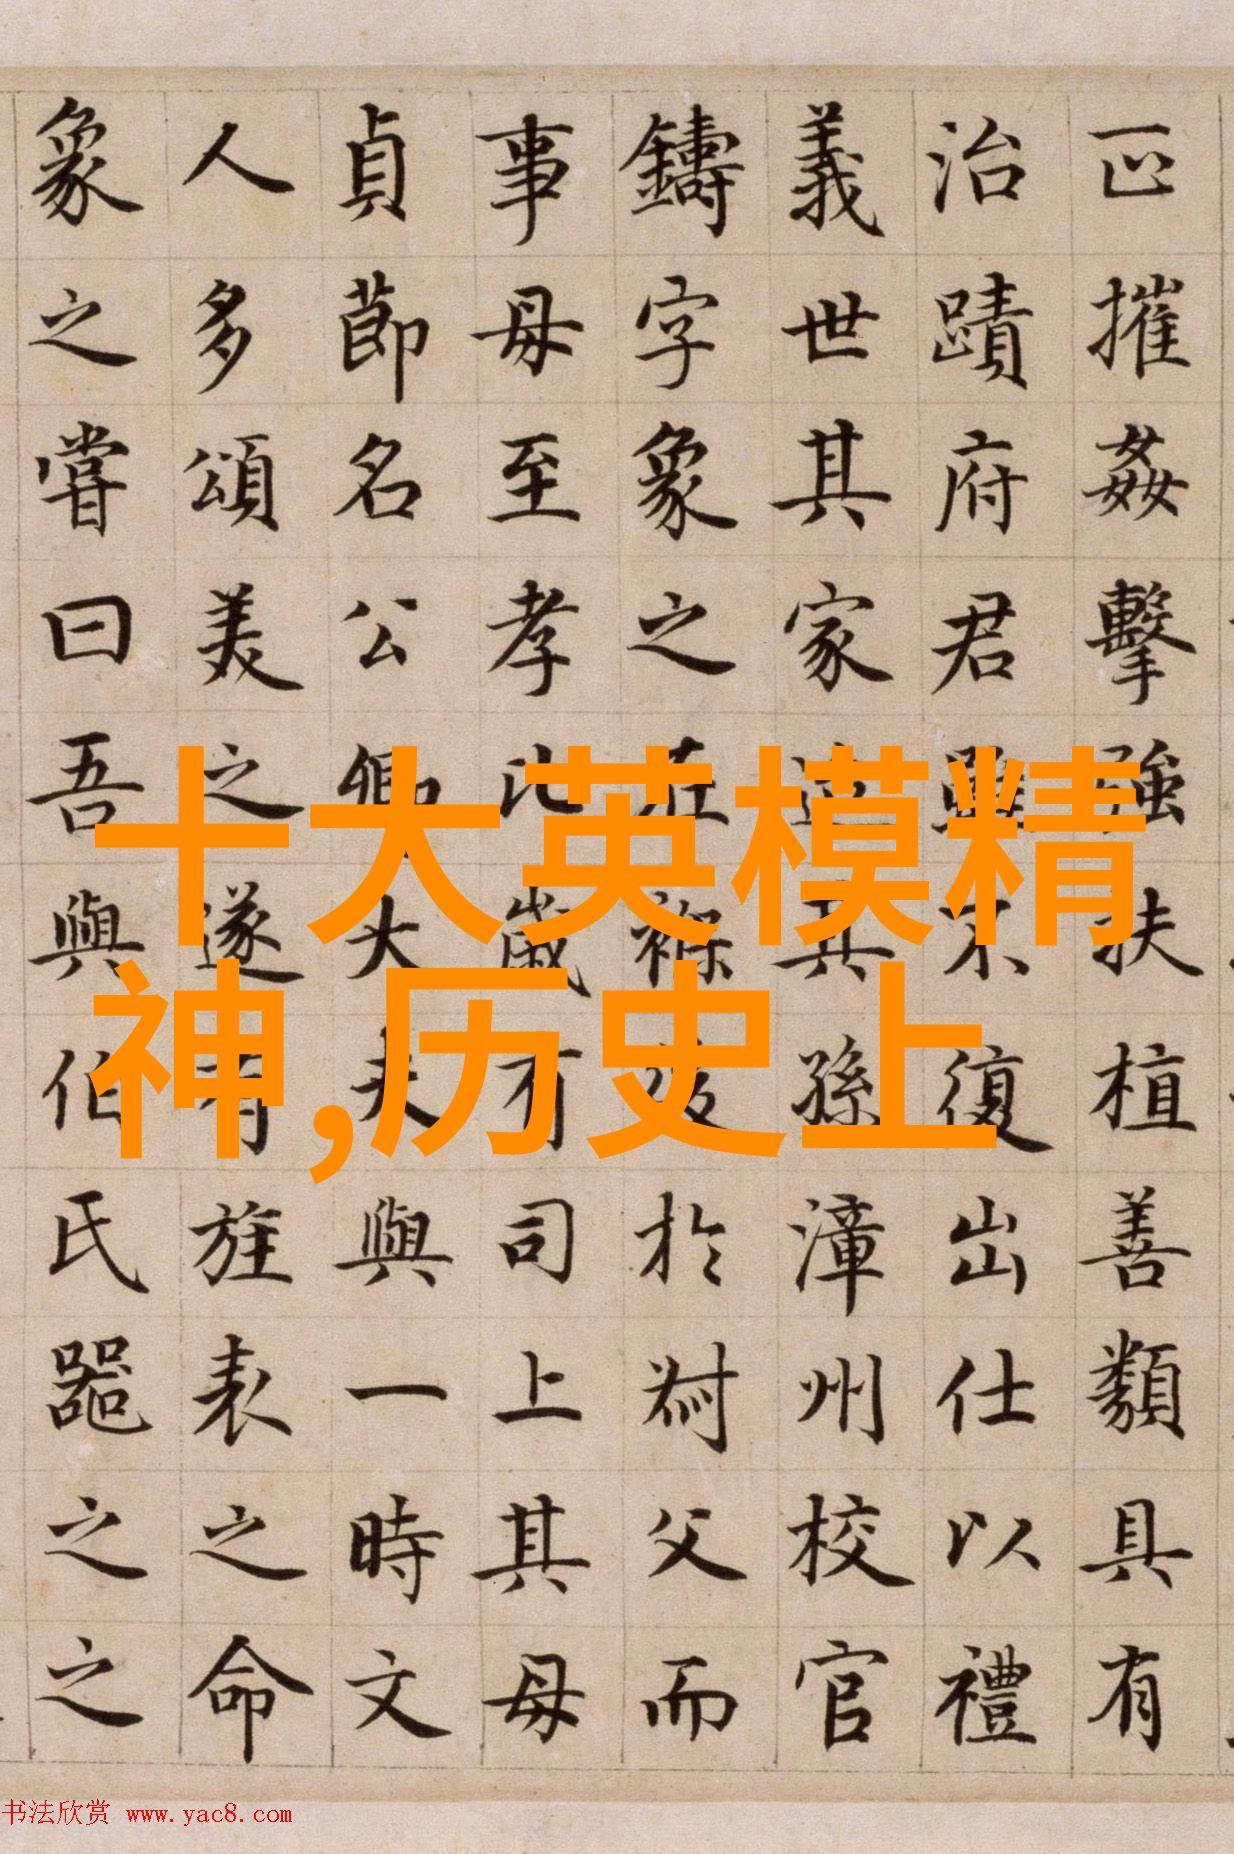 匞摧姦擊強扶植善類具有
治蹟府君雖不復出仕以禮
義世其家這其孫漳州校官
鑄字象之在褓孩於喪父而
事母至孝比歲有司上其母
貞節名公卿大夫與一時文
人多頌美之遂有旌表之命
象之嘗曰吾與伯氏噐之之
十大英模精
神,历史上
书法欣赏 www.yac8.com